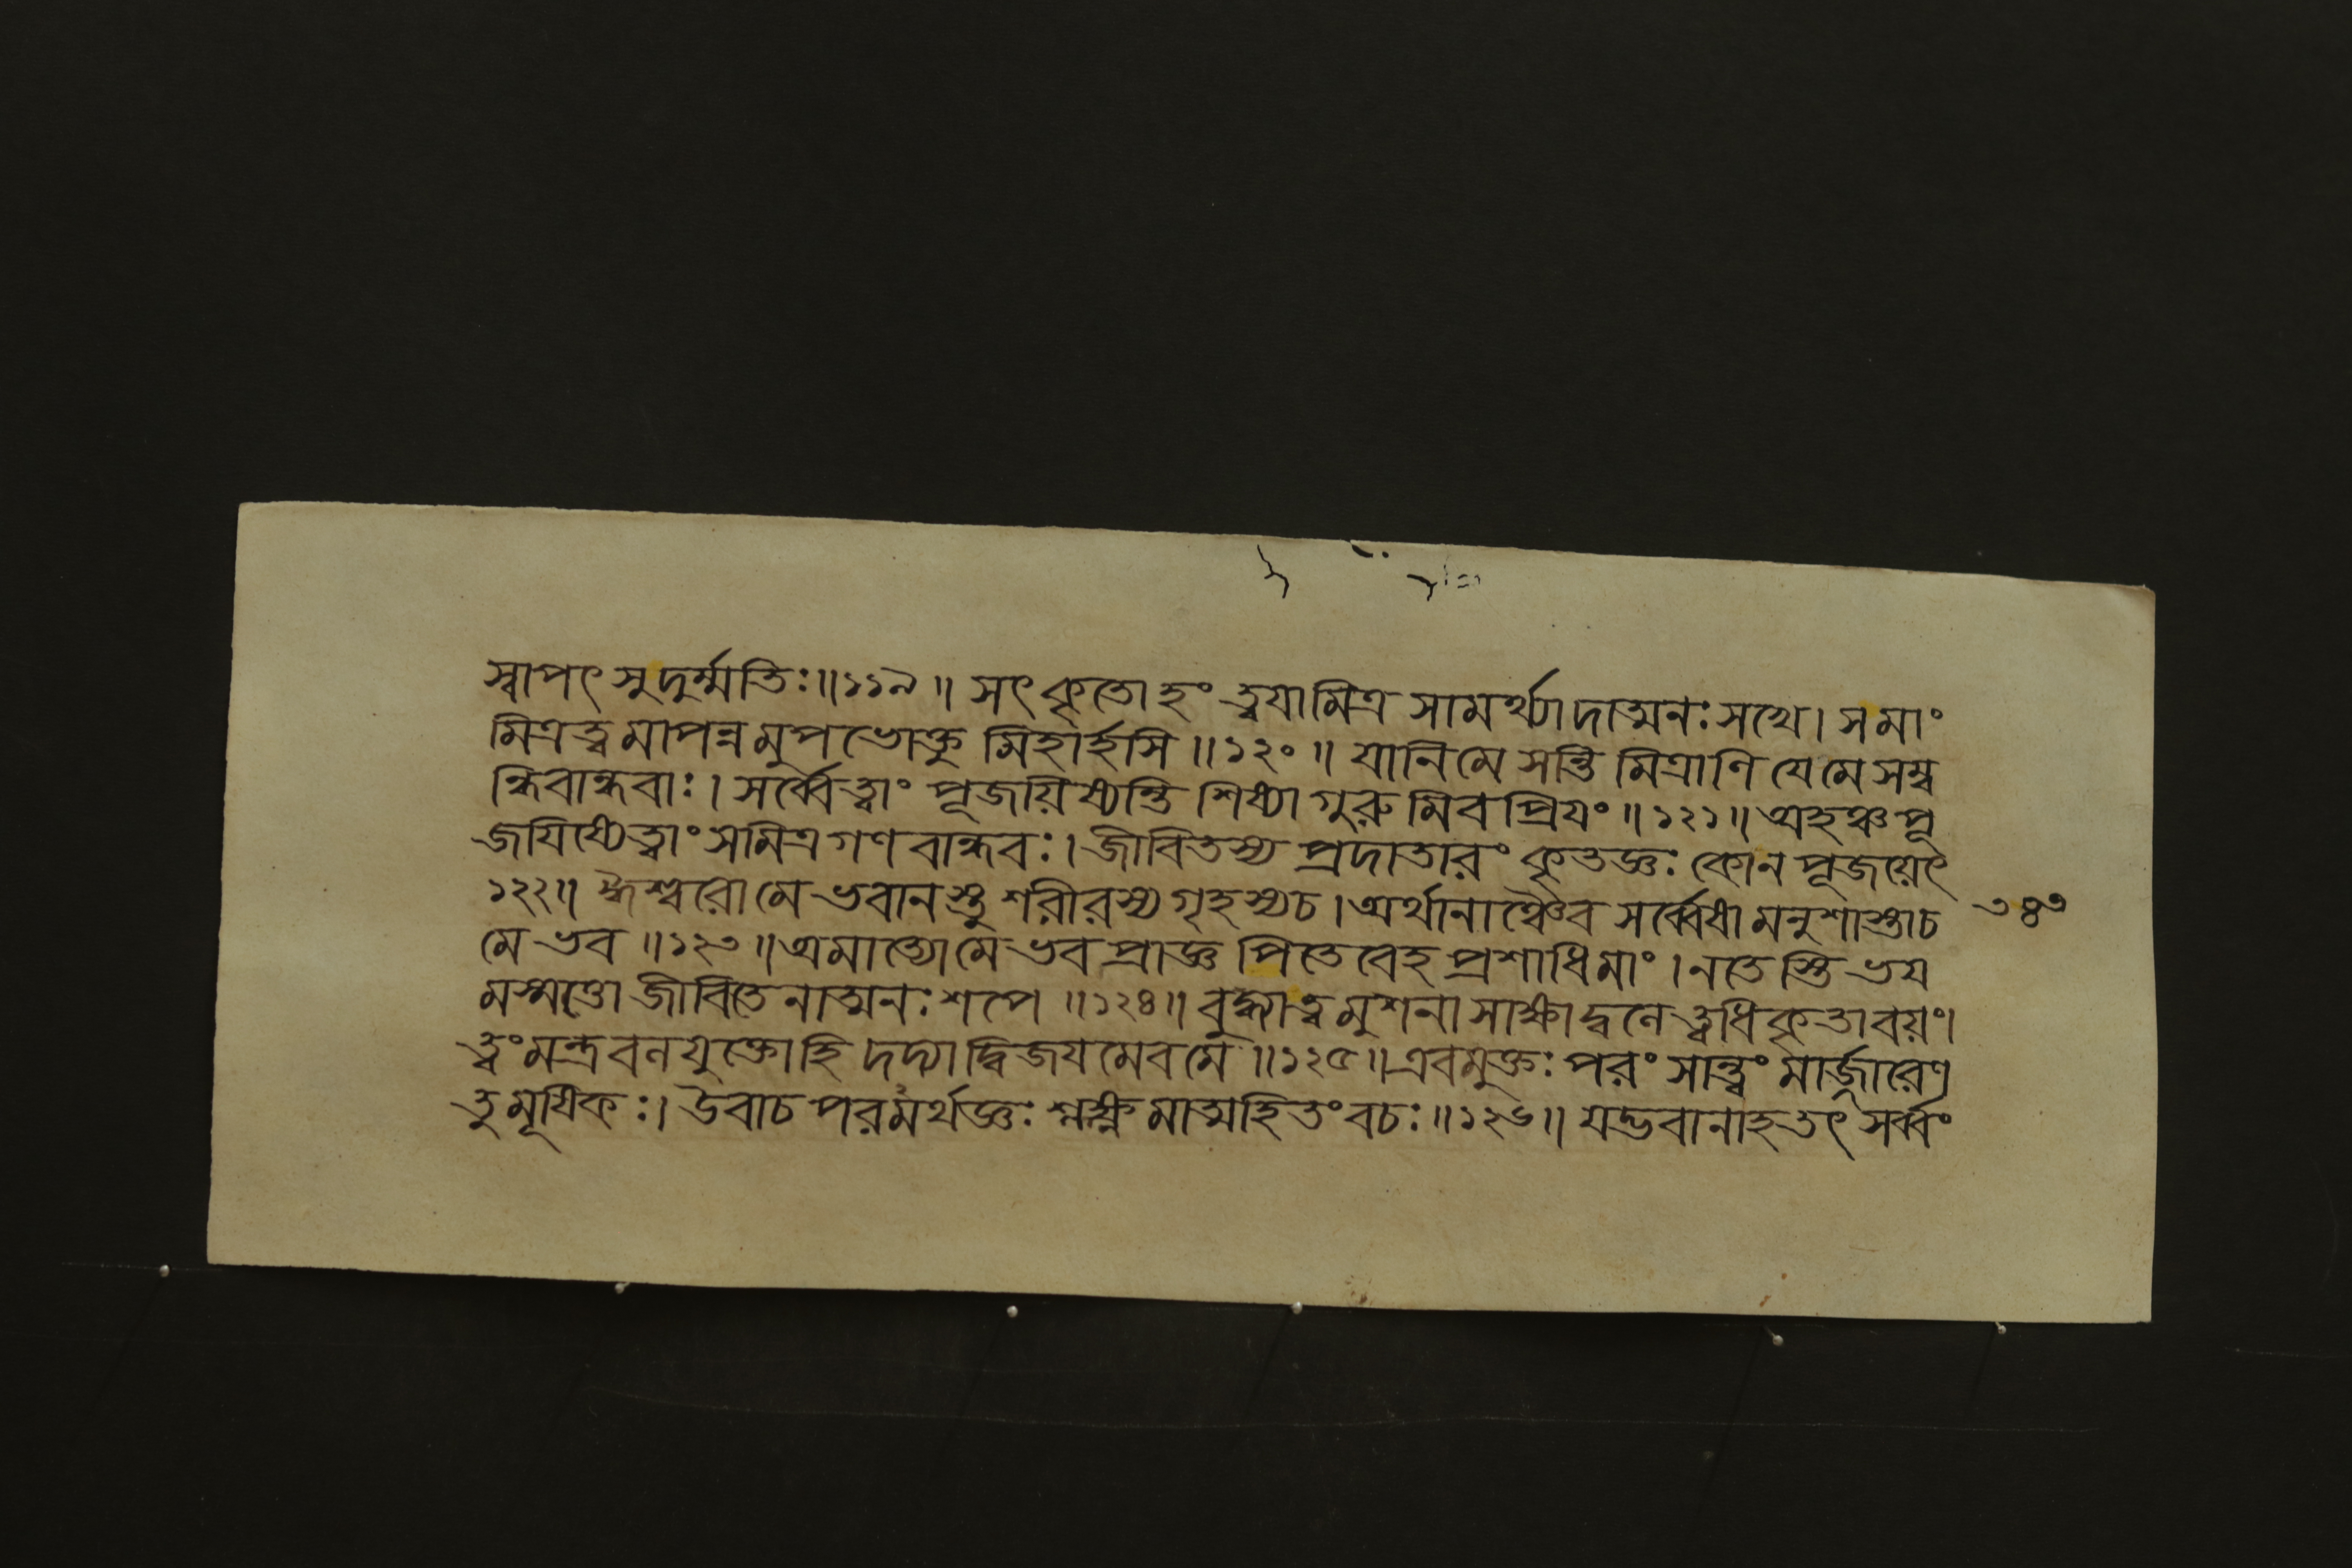 স্বাপৎ সুদুর্ম্মতিঃ॥১১৯॥ সৎকৃতোহং ত্বযামিত্র সামর্থ্যাদাত্মনঃ সখে। সমাং
মিত্রত্বমাপন্নমুপভোক্তুমিহার্হসি॥১২০॥ যানিমে সন্তি মিত্রাণি যেমে সম্ব
ন্ধিবান্ধবাঃ। সর্ব্বেত্বাং পূজয়িষ্যন্তি শিষ্যাগুরুমিবপ্রিযং॥১২১॥ অহঞ্চপূ
জযিষ্যেত্বাং সমিত্রগণবান্ধবঃ। জীবিতস্য প্রদাতারং কৃতজ্ঞঃ কোন পূজয়েৎ
১২২॥ ঈশ্বরোমে ভবানস্তু শরীরস্য গৃহস্যচ। অর্থানাঞ্চৈব সর্ব্বেষামনুশাস্তাচ ৩৪৩
মে ভব॥১২৩॥ অমাত্যোমে ভব প্রাজ্ঞ পিতেবেহ প্রশাধিমাং। নতেস্তি ভয
মস্মত্তো জীবিতেনাত্মনঃ শপে॥১২৪॥ বুদ্ধ্যাত্বমুশনা সাক্ষাদ্বনেত্বধিকৃতাবয়ং।
ত্বংমন্ত্রবনযুক্তোহি দদ্যাদ্বিজযমেবমে॥১২৫॥ এবমুক্তঃ পরং সান্ত্বং মার্জ্জারেণ
তুমূষিকঃ। উবাচ পরমর্থজ্ঞঃ শ্লক্ষ্ণমাত্মহিতং বচঃ॥১২৬॥ যদ্ভবানাহ তৎ সর্ব্বং